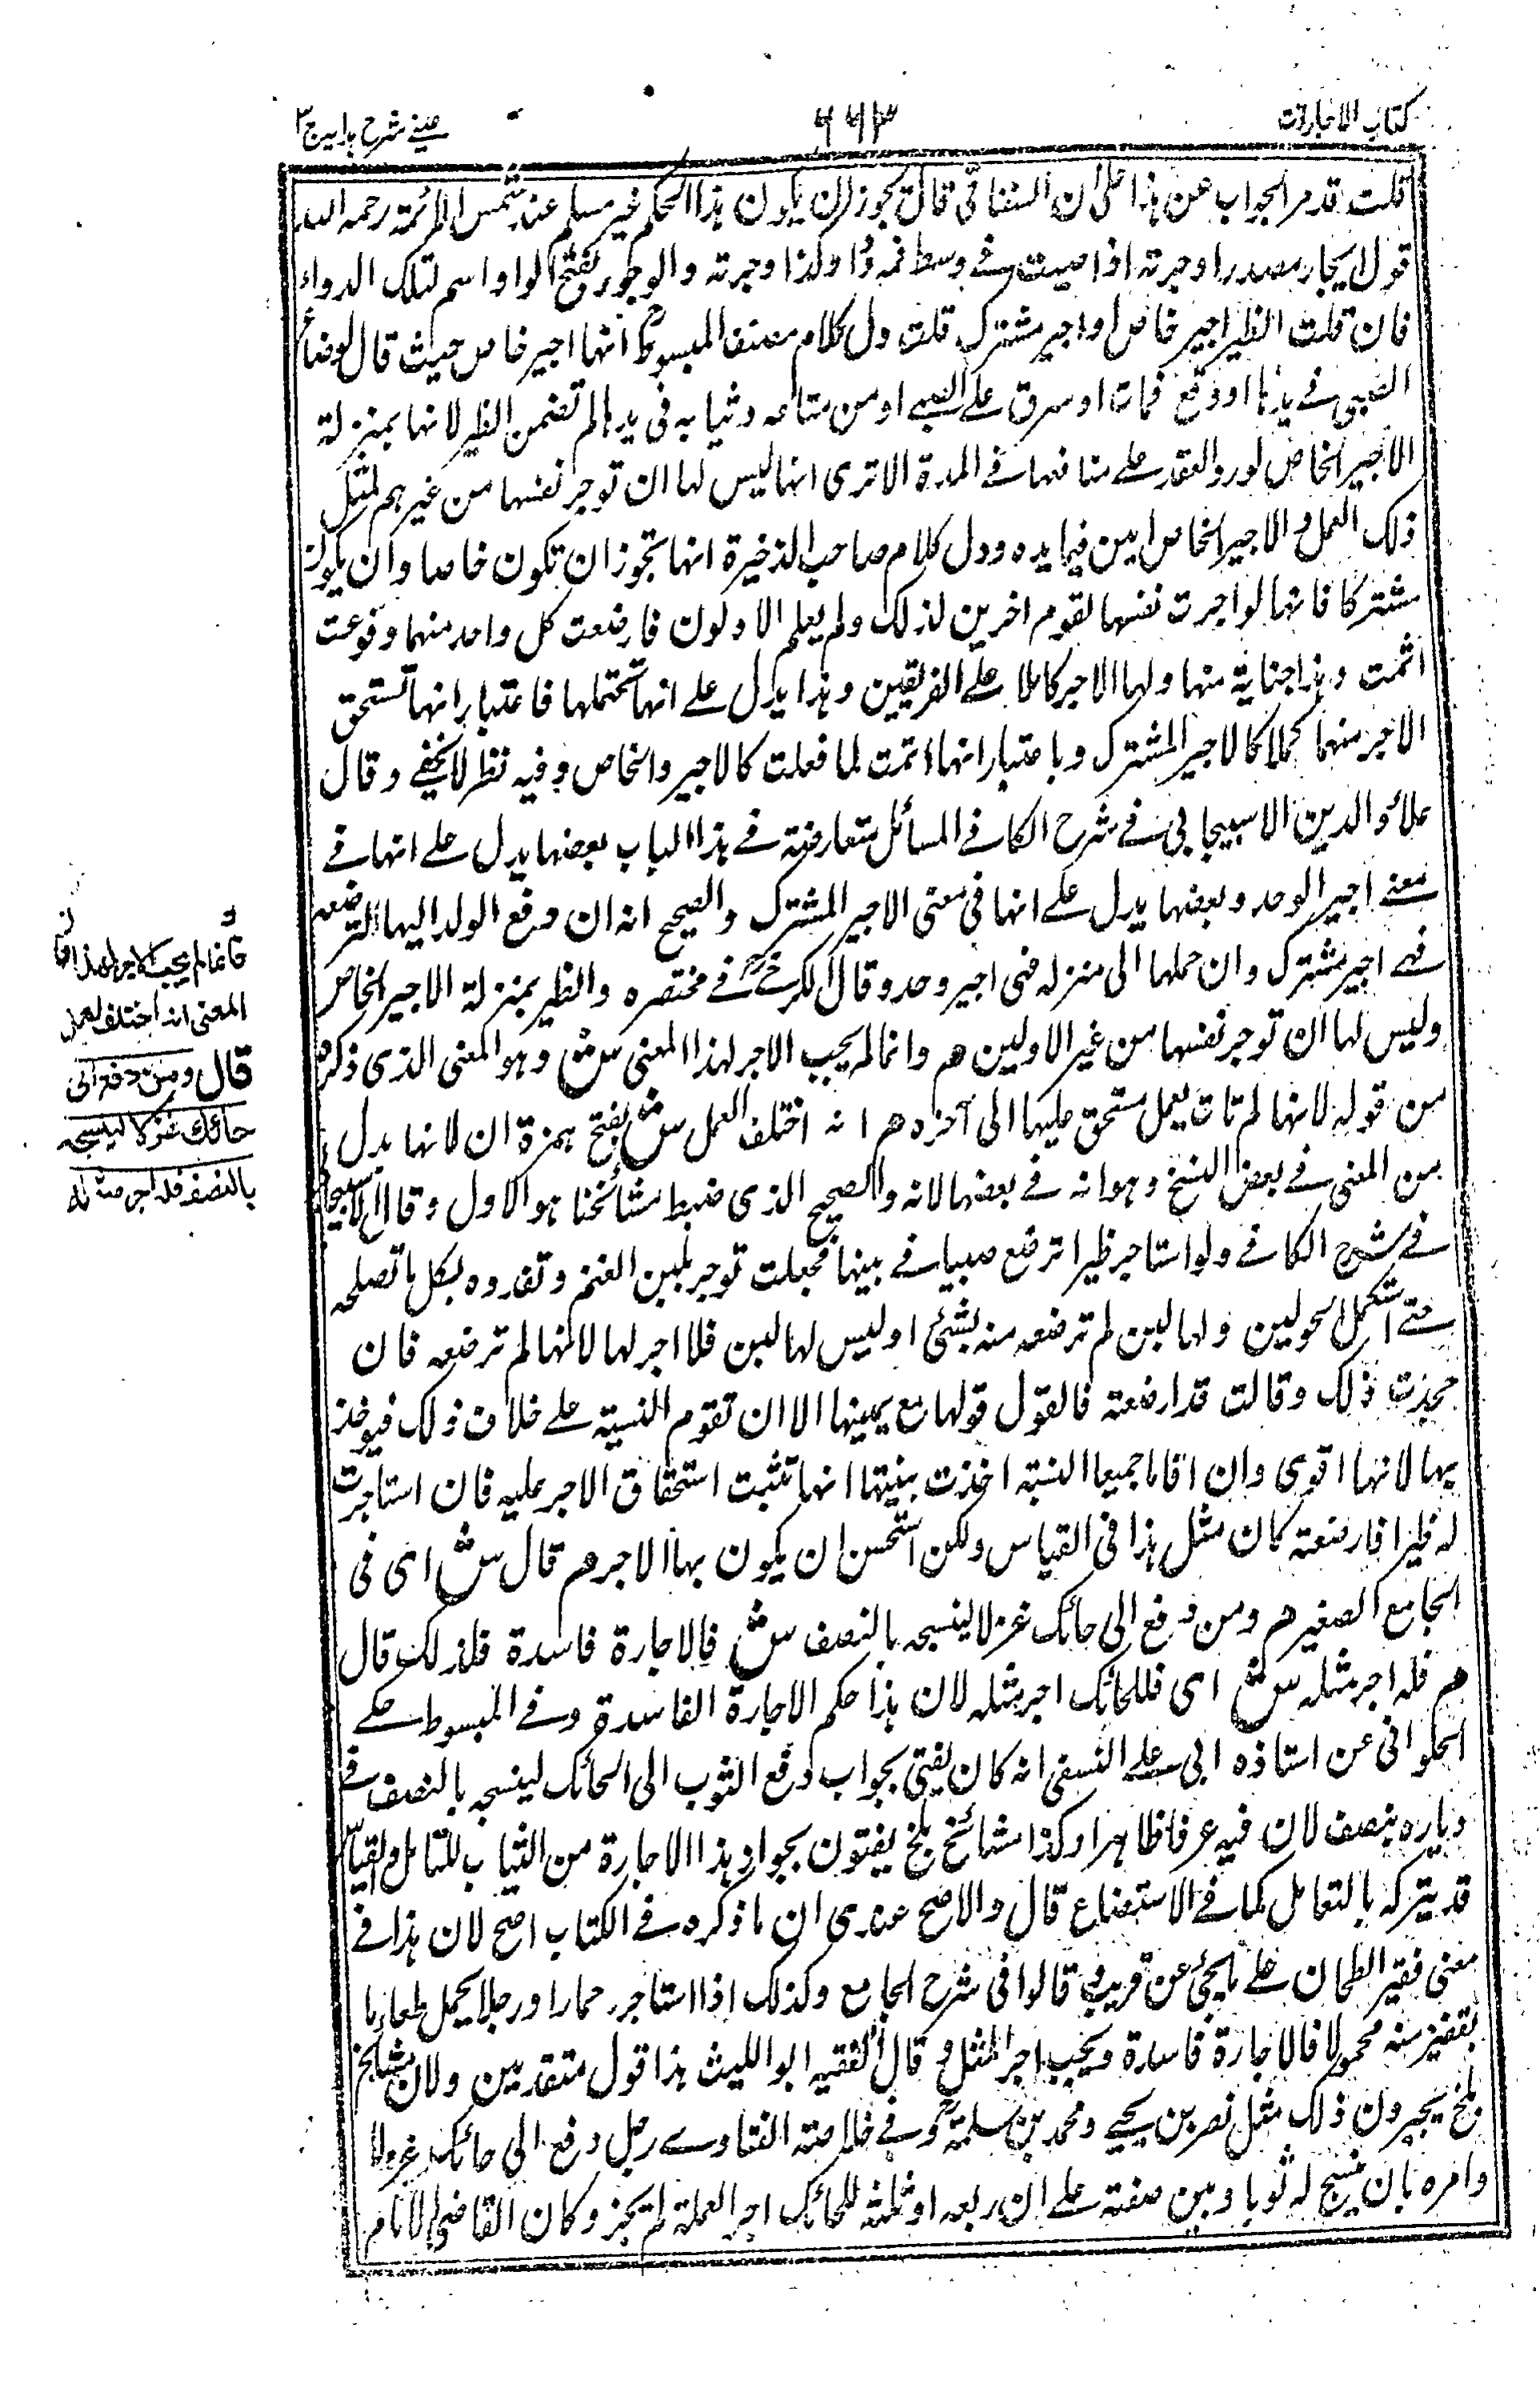 كتاب الاجارات
٦٦٣
عيني شرح هدايه ج ٣
قلت قد مر الجواب عن هذا على ان السغناقي قال يجوز ان يكون هذا الحكم غير مسلم عند شمس الائمة رحمه الله
قوله ايجار مصدر اوجرته اذا صببت في وسط فمه دواء وكذا وجرته والوجور بفتح الواو اسم لتلك الدواء
فان قلت الظئر اجير خاص او اجير مشترك قلت دل كلام مصنف المبسوط انها اجير خاص حيث قال لو ضاع
الصبي في يدها او وقع فمات او سرق على الصبي او من متاعه وثيابه في يدها لم تضمن الظئر لانها بمنزلة
الاجير الخاص لورود العقد على منافعها في المدة الا ترى انها ليس لها ان توجر نفسها من غيرهم لمثل
ذلك العمل والاجير الخاص امين فيما يده ودل كلام صاحب الذخيرة انها يجوز ان تكون خاصا وان يكون
مشتركا فانها لو اجرت نفسها لقوم اخرين لذلك ولم يعلم الاولون فارضعت كل واحد منهما وفرغت
اثمت وهذا جناية منها ولها الاجر كاملا على الفريقين وهذا يدل على انها تحتملها فاعتبار انها تستحق
الاجر منهما كملا كالاجير المشترك وباعتبار انها اثمت لما فعلت كالاجير والخاص وفيه نظر لا يخفي وقال
علاؤ الدين الاسبيجابي في شرح الكافي المسائل متعارضة في هذا الباب بعضها يدل على انها في
معنى اجير الوحد وبعضها يدل على انها في معنى الاجير المشترك والصحيح انه ان دفع الولد اليها لترضعه
فهي اجير مشترك وان حملها الى منزله فهى اجير وحد وقال الكرخي في مختصره والظئر بمنزلة الاجير الخاص
وليس لها ان توجر نفسها من غير الاولين هم وانما لم يجب الاجر لهذا المعنى ش وهو المعنى الذى ذكره
من قوله لانها لم تات بعمل مستحق عليها الى آخره هم انه اختلف العمل ش بفتح همزة ان لانها بدل
من المعنى في بعض النسخ وهو انه في بعضها لانه والصحيح الذى ضبط مشائخنا هو الاول وقال الاسبيجابي
في شرح الكافي ولو استاجر ظيرا ترضع صبيا في بيتها فجعلت توجر بلبن الغنم وتغذوه بكل ما تصلحه
حتى استكمل الحولين ولها لبن لم ترضعه منه بشئ او ليس لها لبن فلا اجر لها لانها لم ترضعه فان
جحدت ذلك وقالت قد ارضعته فالقول قولها مع يمينها الا ان تقوم البينة على خلاف ذلك فيوخذ
بها لانها اقوى وان اقاما جميعا البينة اخذت ببينتها انها تثبت استحقاق الاجر عليه فان استاجرت
له ظيرا فارضعته كان مثل هذا في القياس ولكن استحسن ان يكون بها الاجر هم قال ش اى في
الجامع الصغير هم ومن دفع الى حائك غزلا لينسجه بالنصف ش فالاجارة فاسدة فلذلك قال
هم فله اجر مثله ش اى فللحائك اجر مثله لان هذا حكم الاجارة الفاسدة وفي المبسوط حكى
الحلوانى عن استاذه ابى على النسفى انه كان يفتى بجواب دفع الثوب الى الحائك لينسجه بالنصف في
دياره بنصف لان فيه عرفا ظاهرا وكذا مشائخ بلخ يفتون بجواز هذا الاجارة من الثياب للتعامل والقياس
قد يترك بالتعامل كما في الاستصناع قال والاصح عندى ان ما ذكره في الكتاب اصح لان هذا في
معنى قفيز الطحان على ما يجئ عن قريب قالوا في شرح الجامع وكذلك اذا استاجر حمارا ورجلا يحمل طعاما
بقفيز منه محمولا فالاجارة فاسدة ويجب اجر المثل وقال الفقيه ابو الليث هذا قول متقدمين ولان مشايخ
بلخ يجيزون ذلك مثل نصر بن يحيى ومحمد بن سلمة وفي خلاصة الفتاوى رجل دفع الى حائك غزولا
وامره بان ينسج له ثوبا وبين صفته على ان ربعه او ثلثه للحائك اجر العملة لم يجز وكان القاضى الامام
وانما لم يجب الاجر لهذا
المعنى انه اختلف العمل
قال ومن دفع الى
حائك غزلا لينسجه
بالنصف فله اجر مثله